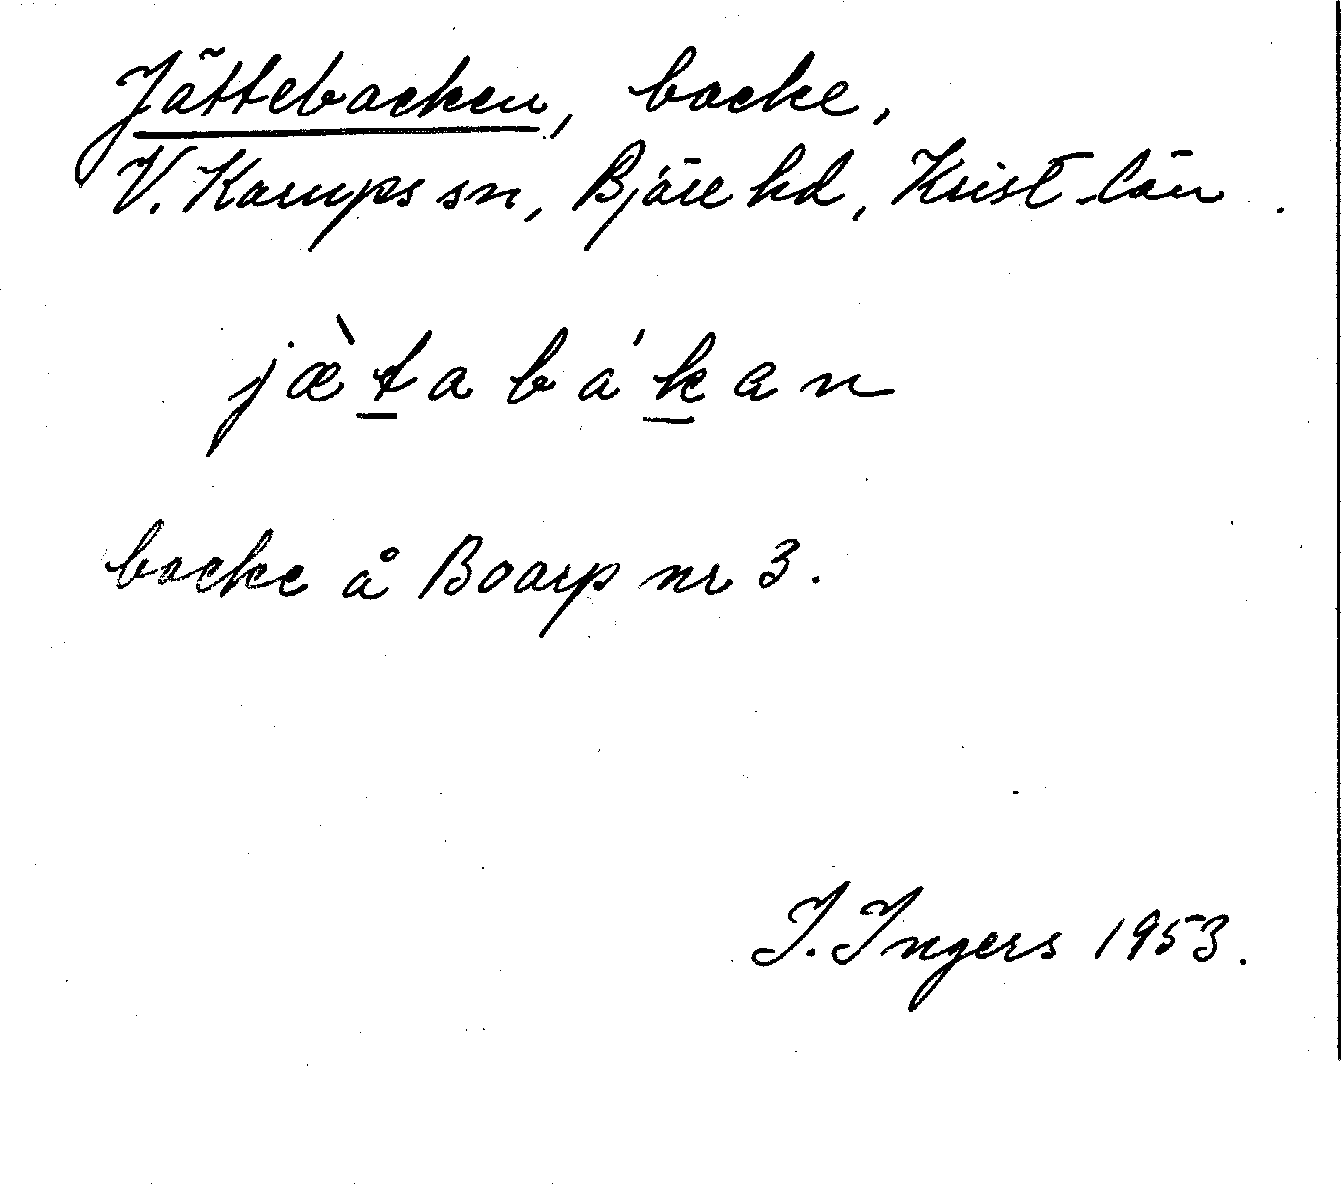 Jättebacken, backe,
V. Karups sn, Bjäre hd, Krist. län.
jæ̀tabákan
backe å Boarp nr 3.
I. Ingers 1953.